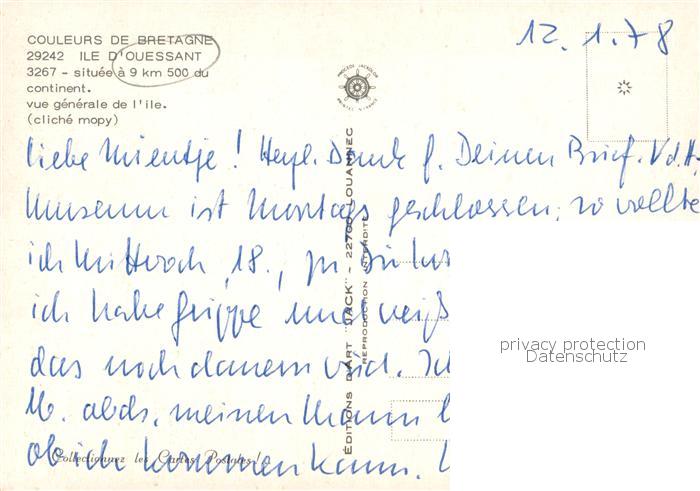 12.1.78
COULEURS DE BRETAGNE
29242 ILE D'OUESSANT
3267 - située à 9 km 500 du
continent.
vue générale de l'ile.
(cliché mopy)
PROCEDE JACKOLOR
Liebe Mientje! Herzl. Dank f. Deinen Brief. V.d.H.
Museum ist Montags geschlossen; so wollte
ich Mittwoch, 18., zu
ich habe Grippe und weiß
das noch dauern wird.
16. abds. meinen Mann
ob ich kommen kann.
Collectionnez les Cartes Postales!
ÉDITIONS D'ART "JACK" - 22700 LOUANNEC
REPRODUCTION INTERDITE
privacy protection
Datenschutz